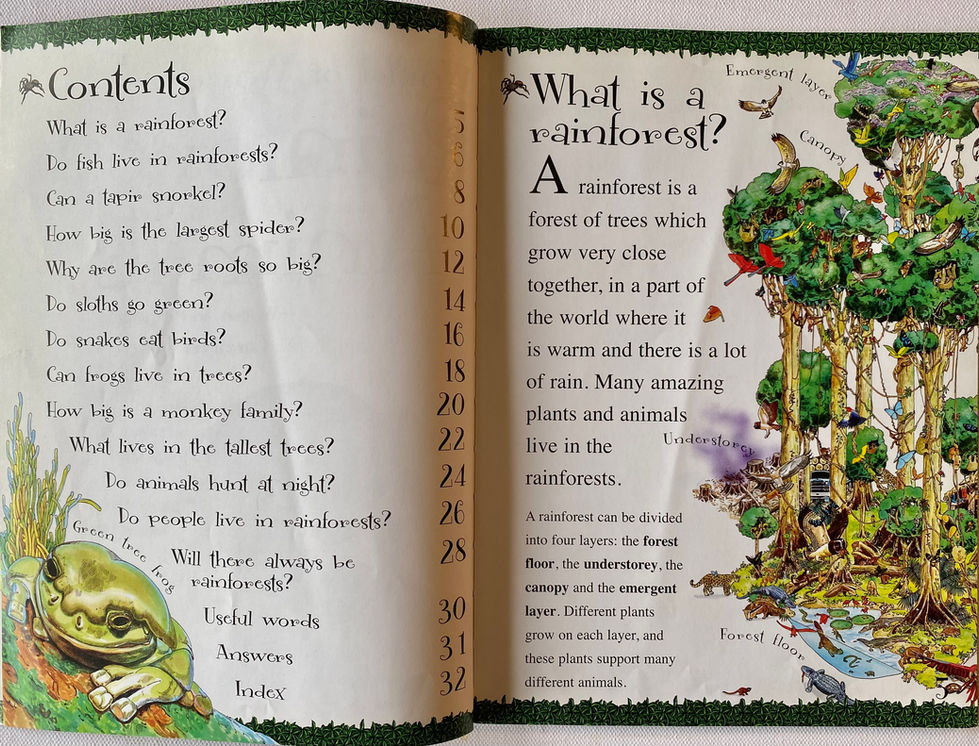 Contents
What is a rainforest? 5
Do fish live in rainforests? 6
Can a tapir snorkel? 8
How big is the largest spider? 10
Why are the tree roots so big? 12
Do sloths go green? 14
Do snakes eat birds? 16
Can frogs live in trees? 18
How big is a monkey family? 20
What lives in the tallest trees? 22
Do animals hunt at night? 24
Do people live in rainforests? 26
Will there always be 28
rainforests?
Useful words 30
Answers 31
Index 32
Green tree frog
What is a
rainforest?
A rainforest is a
forest of trees which
grow very close
together, in a part of
the world where it
is warm and there is a lot
of rain. Many amazing
plants and animals
live in the
rainforests.
A rainforest can be divided
into four layers: the forest
floor, the understorey, the
canopy and the emergent
layer. Different plants
grow on each layer, and
these plants support many
different animals.
Emergent layer
Canopy
Understorey
Forest floor